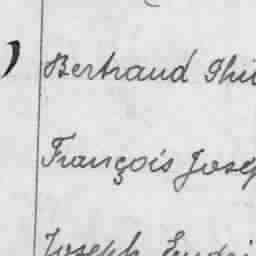 Bertrand Ghi
François Jose
Joseph